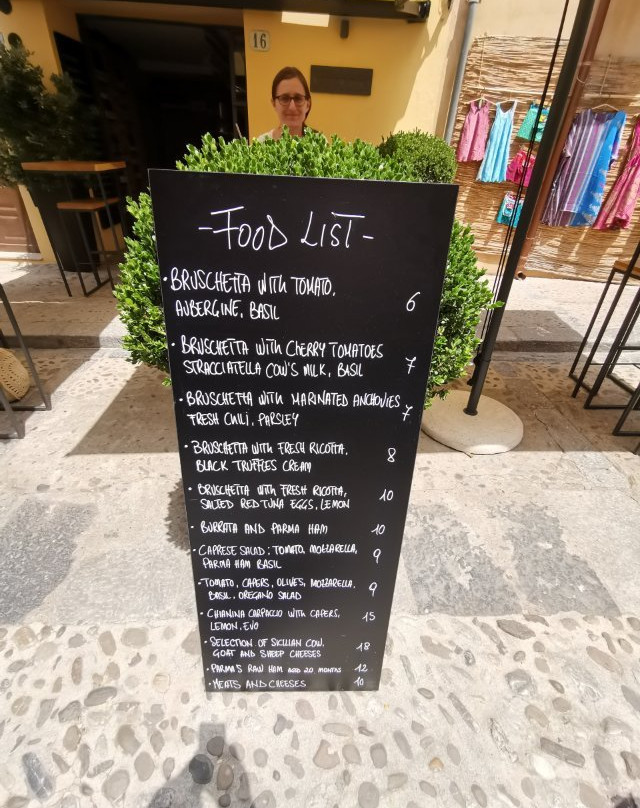 16
-FOOD LIST-
• BRUSCHETTA WITH TOMATO,
AUBERGINE, BASIL 6
• BRUSCHETTA WITH CHERRY TOMATOES
STRACCIATELLA COW'S MILK, BASIL 7
• BRUSCHETTA WITH MARINATED ANCHOVIES
FRESH CHILI, PARSLEY 7
• BRUSCHETTA WITH FRESH RICOTTA,
BLACK TRUFFLES CREAM 8
• BRUSCHETTA WITH FRESH RICOTTA,
SALTED RED TUNA EGGS, LEMON 10
• BURRATA AND PARMA HAM 10
• CAPRESE SALAD: TOMATO, MOZZARELLA,
PARMA HAM BASIL 9
• TOMATO, CAPERS, OLIVES, MOZZARELLA,
BASIL, OREGANO SALAD 9
• CHIANINA CARPACCIO WITH CAPERS,
LEMON, EVO 15
• SELECTION OF SICILIAN COW,
GOAT AND SHEEP CHEESES 18
• PARMA'S RAW HAM AGED 20 MONTHS 12
• MEATS AND CHEESES 10